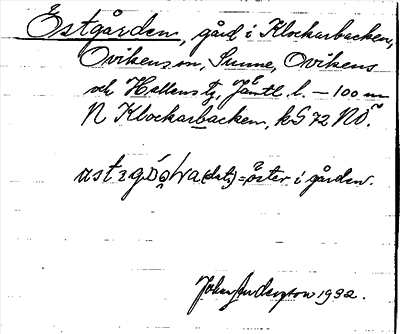 Östgården, gård i Klockarbacken,
Ovikens sn, Sunne, Ovikens
och Hallens tg, Jämtl. l. – 100 m
N Klockarbacken, kS 72 NÖ.
(dat.) = öster i gården.
Johan Anderson 1932.